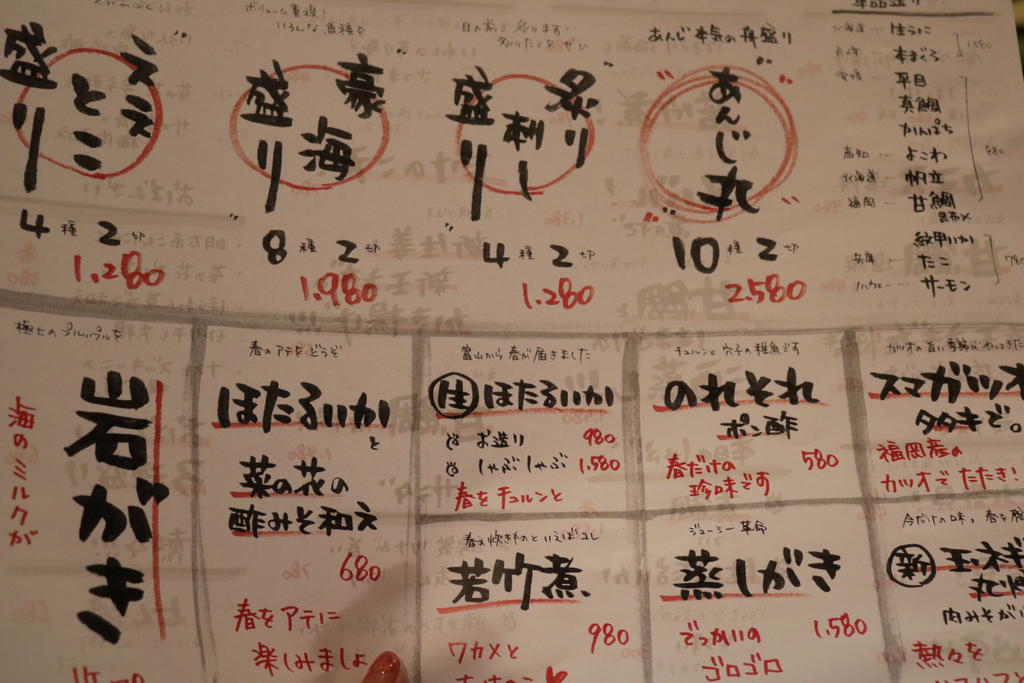 ボリューム重視!
いろんな魚種を
"ええ
とこ
盛り"
4種2切
1.280
"豪
海
盛り"
8種2切
1.980
目の前で炙ります!
"炙り
刺し
盛り"
4種2切
1.280
あんじ本気の舟盛り
"あんじ丸"
10種2切
2.580
単品盛り
北海道…生うに
本まぐろ
1.580
平目
真鯛
かんぱち
高知…よこわ
北海道…帆立
福岡…甘鯛
昆布〆
紋甲いか
兵庫…たこ
ノルウェー…サーモン
極上のプルップルを
岩がき
海のミルクが
春のアテをどうぞ
ほたるいか
と
菜の花の
酢みそ和え
680
春をアテに
楽しみましょ
富山から春が届きました
生ほたるいか
お造り 980
しゃぶしゃぶ 1.580
春をチュルンと
チュルンと穴子の稚魚です
のれそれ
ポン酢
580
春だけの
珍味です
スマガツオ
タタキで。
福岡産の
カツオでたたき!
春の炊きものといえばコレ
若竹煮
980
ワカメと
ジューシー革命
蒸しがき
1.580
でっかいの
ゴロゴロ
今だけの味。春を
新玉ネギ
肉みそが
熱々を